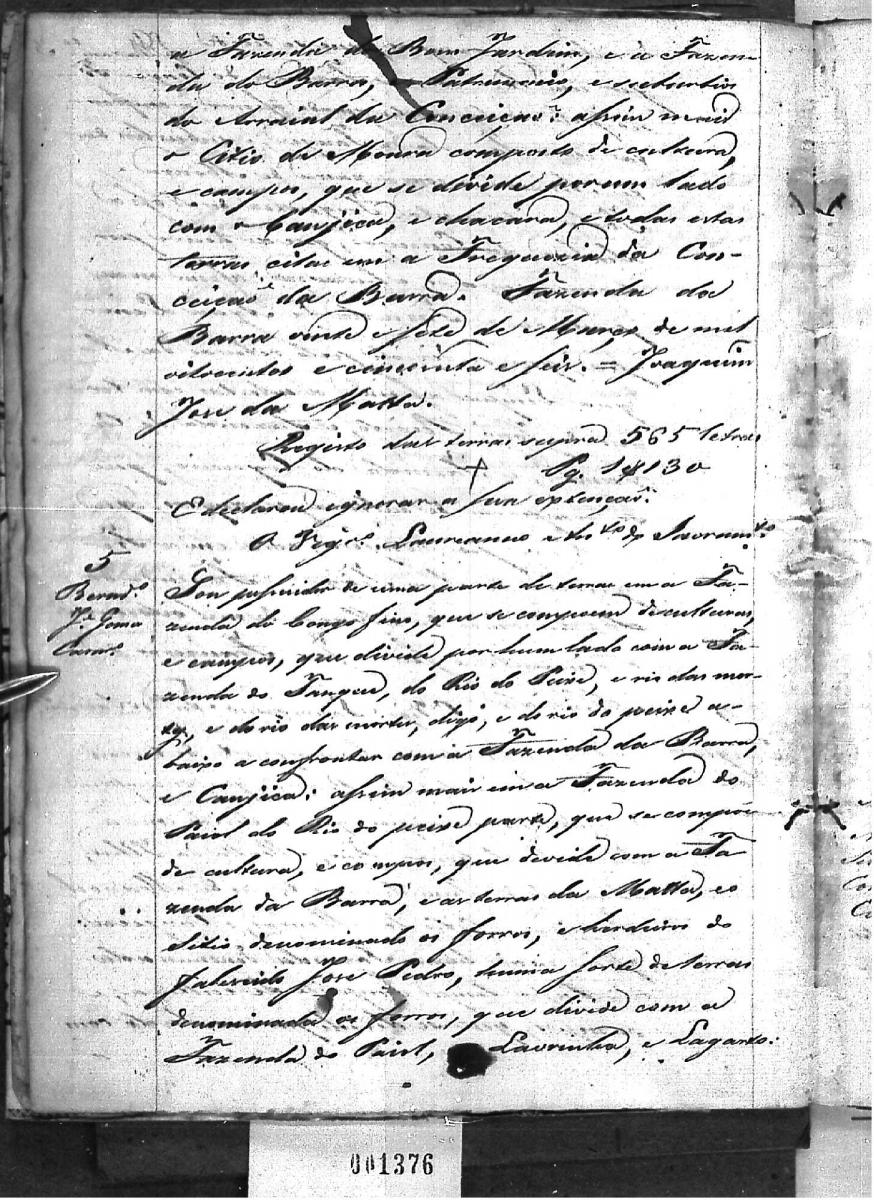 a Fazenda do Bom Jardim, e a Fazen-
da do Barra, Patrimonio, e suburbios
do Arraial da Conceicaõ: assim mais
o Citio de Moura composto de cultura,
e campos, que se divide por um lado
com o Canjica, e chacara, e todas estas
terras citas em a Freguezia da Con-
ceicaõ da Barra. Fazenda da
Barra vinte e sete de Março de mil
oitocentos e cincoenta e seis. = Joaquim
Jose da Matta.
Registo das terras supra 565 letras
Pg. 1$130
E declarou ignorar a sua extençaõ.
O Vigr.º Laureanno do Sacram.to
5
Berad.º
J.e Goma
Sou possuidor de uma parte de terras em a Fa-
zenda do Congo fino, que se compoem de culturas,
e campos, que divide por hum lado com a Fa-
zenda do Tanque, do Rio do Peixe, e rio das mor-
tes, e do rio das mortes, digo, e do rio do peixe a-
baixo a confrontar com a Fazenda da Barra,
e Canjica: assim mais em a Fazenda do
Paiol do Rio do peixe parte, que se compõe
de cultura, e campos, que devide com a Fa
zenda da Barra, e as terras da Matta, e o
Sitio denominado os forros, e herdeiros do
falescido Jose Pedro, huma sorte de terras
denominada os forros, que divide com a
Fazenda do Paiol, Lavrinha, e Lagarto:
001376